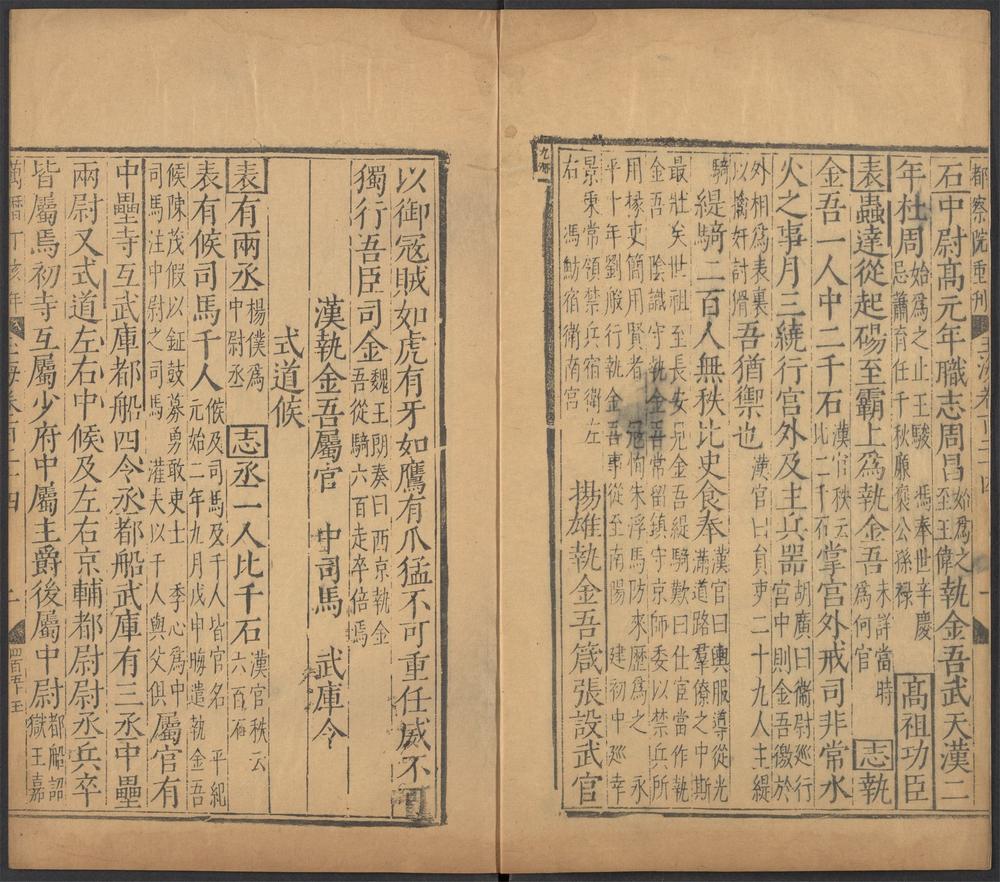 都察院重刊
石中尉高元年職志周昌始爲之至王偉執金吾武天漢二
年杜周始爲之止王駿 馮奉世辛慶忌蕭育任千秋廉褒公孫祿高祖功臣
表蟲達從起碭至霸上爲執金吾未詳當時爲何官志執
金吾一人中二千石漢官秩云比二千石掌宮外戒司非常水
火之事月三繞行宮外及主兵器胡廣曰衞尉廵行宮中則金吾徼於
外相爲表裏以擒奸討猾吾猶禦也漢官曰員吏二十九人主緹
騎緹騎二百人無秩比吏食奉漢官曰輿服導從光滿道路羣僚之中斯
最壯矣世祖至長安見金吾緹騎歎曰仕宦當作執金吾陰識守執金吾常留鎮守京師委以禁兵所
用掾吏簡用賢者 寇恂朱浮馬防來歷爲之 永平十年劉般行執金吾事從至南陽 建初中廵幸
景東常領禁兵宿衛左右 馮魴宿衛南宮 揚雄執金吾箴張設武官
以御寇賊如虎有牙如鷹有爪猛不可重任威不可
獨行吾臣司金魏王朗奏曰西京執金吾從騎六百走卒倍焉
漢執金吾屬官 中司馬 武庫令
式道候
表有兩丞楊僕爲中尉丞志丞一人比千石漢官秩云六百石
表有候司馬千人候及司馬及千人皆官名 平紀元始二年九月戊申晦遣執金吾
候陳茂假以鉦鼓募勇敢吏士 季心爲中司馬注中尉之司馬 灌夫以千人與父俱屬官有
中壘寺互武庫都船四令丞都船武庫有三丞中壘
兩尉又式道左右中候及左右京輔都尉尉丞兵卒
皆屬焉初寺互屬少府中屬主爵後屬中尉都船詔獄王嘉
萬曆丁亥年